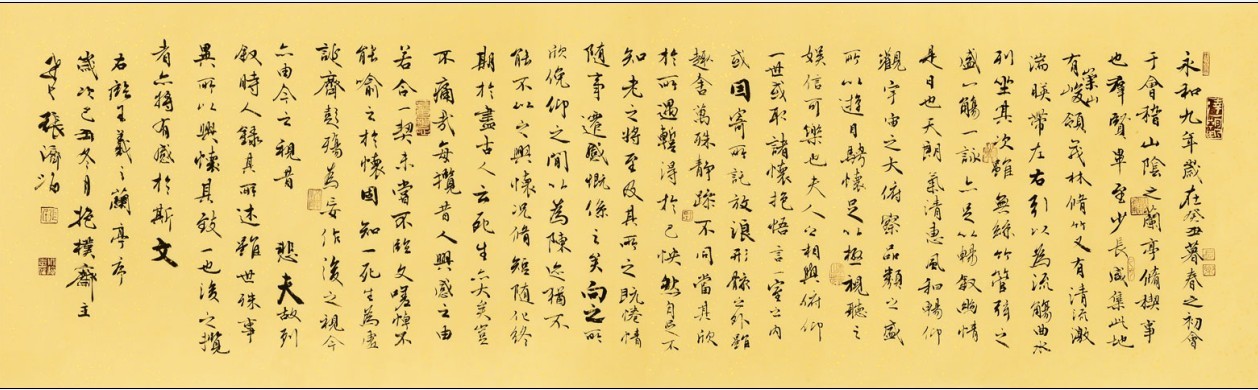 永和九年歲在癸丑暮春之初會
于會稽山陰之蘭亭脩禊事
也羣賢畢至少長咸集此地
有崇山峻領茂林脩竹又有清流激
湍暎帶左右引以為流觴曲水
列坐其次雖無絲竹管弦之
盛一觴一詠亦足以暢敘幽情
是日也天朗氣清惠風和暢仰
觀宇宙之大俯察品類之盛
所以遊目騁懷足以極視聽之
娛信可樂也夫人之相與俯仰
一世或取諸懷抱悟言一室之內
或因寄所託放浪形骸之外雖
趣舍萬殊靜躁不同當其欣
於所遇暫得於己怏然自足不
知老之將至及其所之既惓情
隨事遷感慨係之矣向之所
欣俛仰之間以為陳迹猶不
能不以之興懷況脩短隨化終
期於盡古人云死生亦大矣豈
不痛哉每攬昔人興感之由
若合一契未嘗不臨文嗟悼不
能喻之於懷固知一死生為虛
誕齊彭殤為妄作後之視今
亦由今之視昔 悲夫故列
敘時人錄其所述雖世殊事
異所以興懷其致一也後之攬
者亦將有感於斯文
右臨王羲之蘭亭序
歲次己丑冬月抱樸齋主
張濟